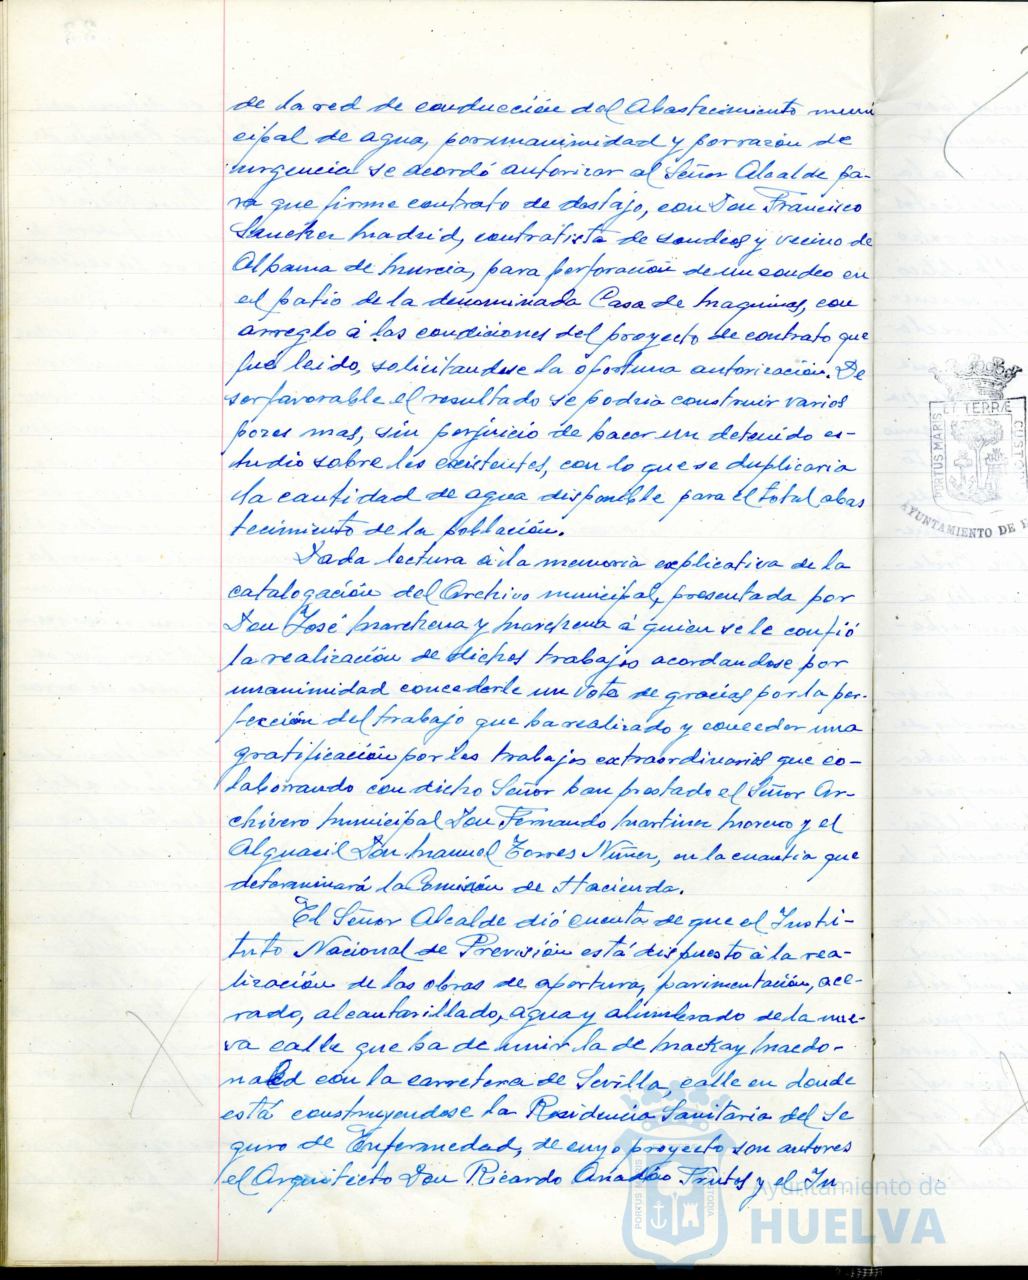 de la red de conducción del Abastecimiento muni
cipal de agua, por unanimidad y por razón de
urgencia se acordó autorizar al Señor Alcalde pa-
ra que firme contrato de destajo, con Don Francisco
Sanchez Madrid, contratista de sondeos y vecino de
Alhama de Murcia, para perforación de un sondeo en
el patio de la denominada Casa de Maquinas, con
arreglo á las condiciones del proyecto de contrato que
fué leido, solicitandose la oportuna autorización. De
ser favorable el resultado se podria construir varios
pozos mas, sin perjuicio de hacer un detenido es-
tudio sobre los existentes, con lo que se duplicaria
la cantidad de agua disponible para el total abas
tecimiento de la población.
Dada lectura á la memoria explicativa de la
catalogación del Archivo municipal, presentada por
Don José Marchena y Marchena á quien se le confió
la realización de dichos trabajos acordandose por
unanimidad concederle un voto de gracias por la per-
fección del trabajo que ha realizado y conceder una
gratificación por los trabajos extraordinarios que co-
laborando con dicho Señor han prestado el Señor Ar-
chivero Municipal Don Fernando Martinez Moreno y el
Alguacil Don Manuel Torres Núñez, en la cuantia que
determinará la Comisión de Hacienda.
El Señor Alcalde dió cuenta de que el Insti-
tuto Nacional de Previsión está dispuesto á la rea-
lización de las obras de apertura, pavimentación, ace-
rado, alcantarillado, agua y alumbrado de la nue-
va calle que ha de unir la de Mackay Macdo-
nald con la carretera de Sevilla, calle en donde
está construyendose la Residencia Sanitaria del Se
guro de Enfermedad, de cuyo proyecto son autores
el Arquitecto Don Ricardo Anadón Frutos y el In
PORTUS MARIS ET TERRÆ CUSTODI
AYUNTAMIENTO DE
PORTUS MARIS CUSTODIA
Ayuntamiento de
HUELVA